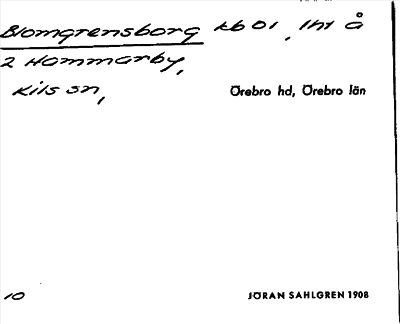 Blomgrensborg kb 01, lht å
2 Hammarby,
Kils sn,
Örebro hd, Örebro län
10
JÖRAN SAHLGREN 1908